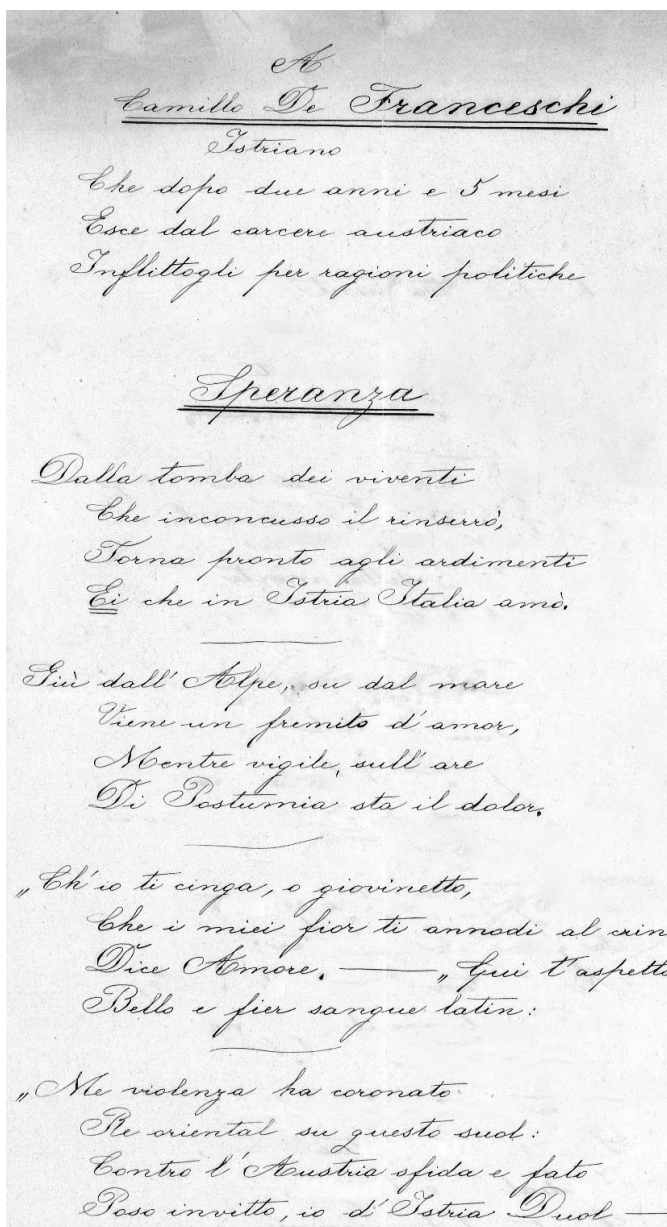 A
Camillo De Franceschi
Istriano
Che dopo due anni e 5 mesi
Esce dal carcere austriaco
Inflittogli per ragioni politiche
Speranza
Dalla tomba dei viventi
Che inconcusso il rinserrò,
Torna pronto agli ardimenti
Ei che in Istria Italia amò.
Giù dall' Alpe, su dal mare
Viene un fremito d'amor,
Mentre vigile, sull' are
Di Postumia sta il dolor.
„Ch' io ti cinga, o giovinetto,
Che i miei fior ti annodi al crin
Dice Amore. — „Qui t'aspetto
Bello e fier sangue latin:
„Me violenza ha coronato
Re oriental su questo suol:
Contro l' Austria sfida e fato
Poso invitto, io d' Istria Duol —